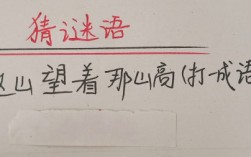 猜谜语
这山望着那山高(打一成语